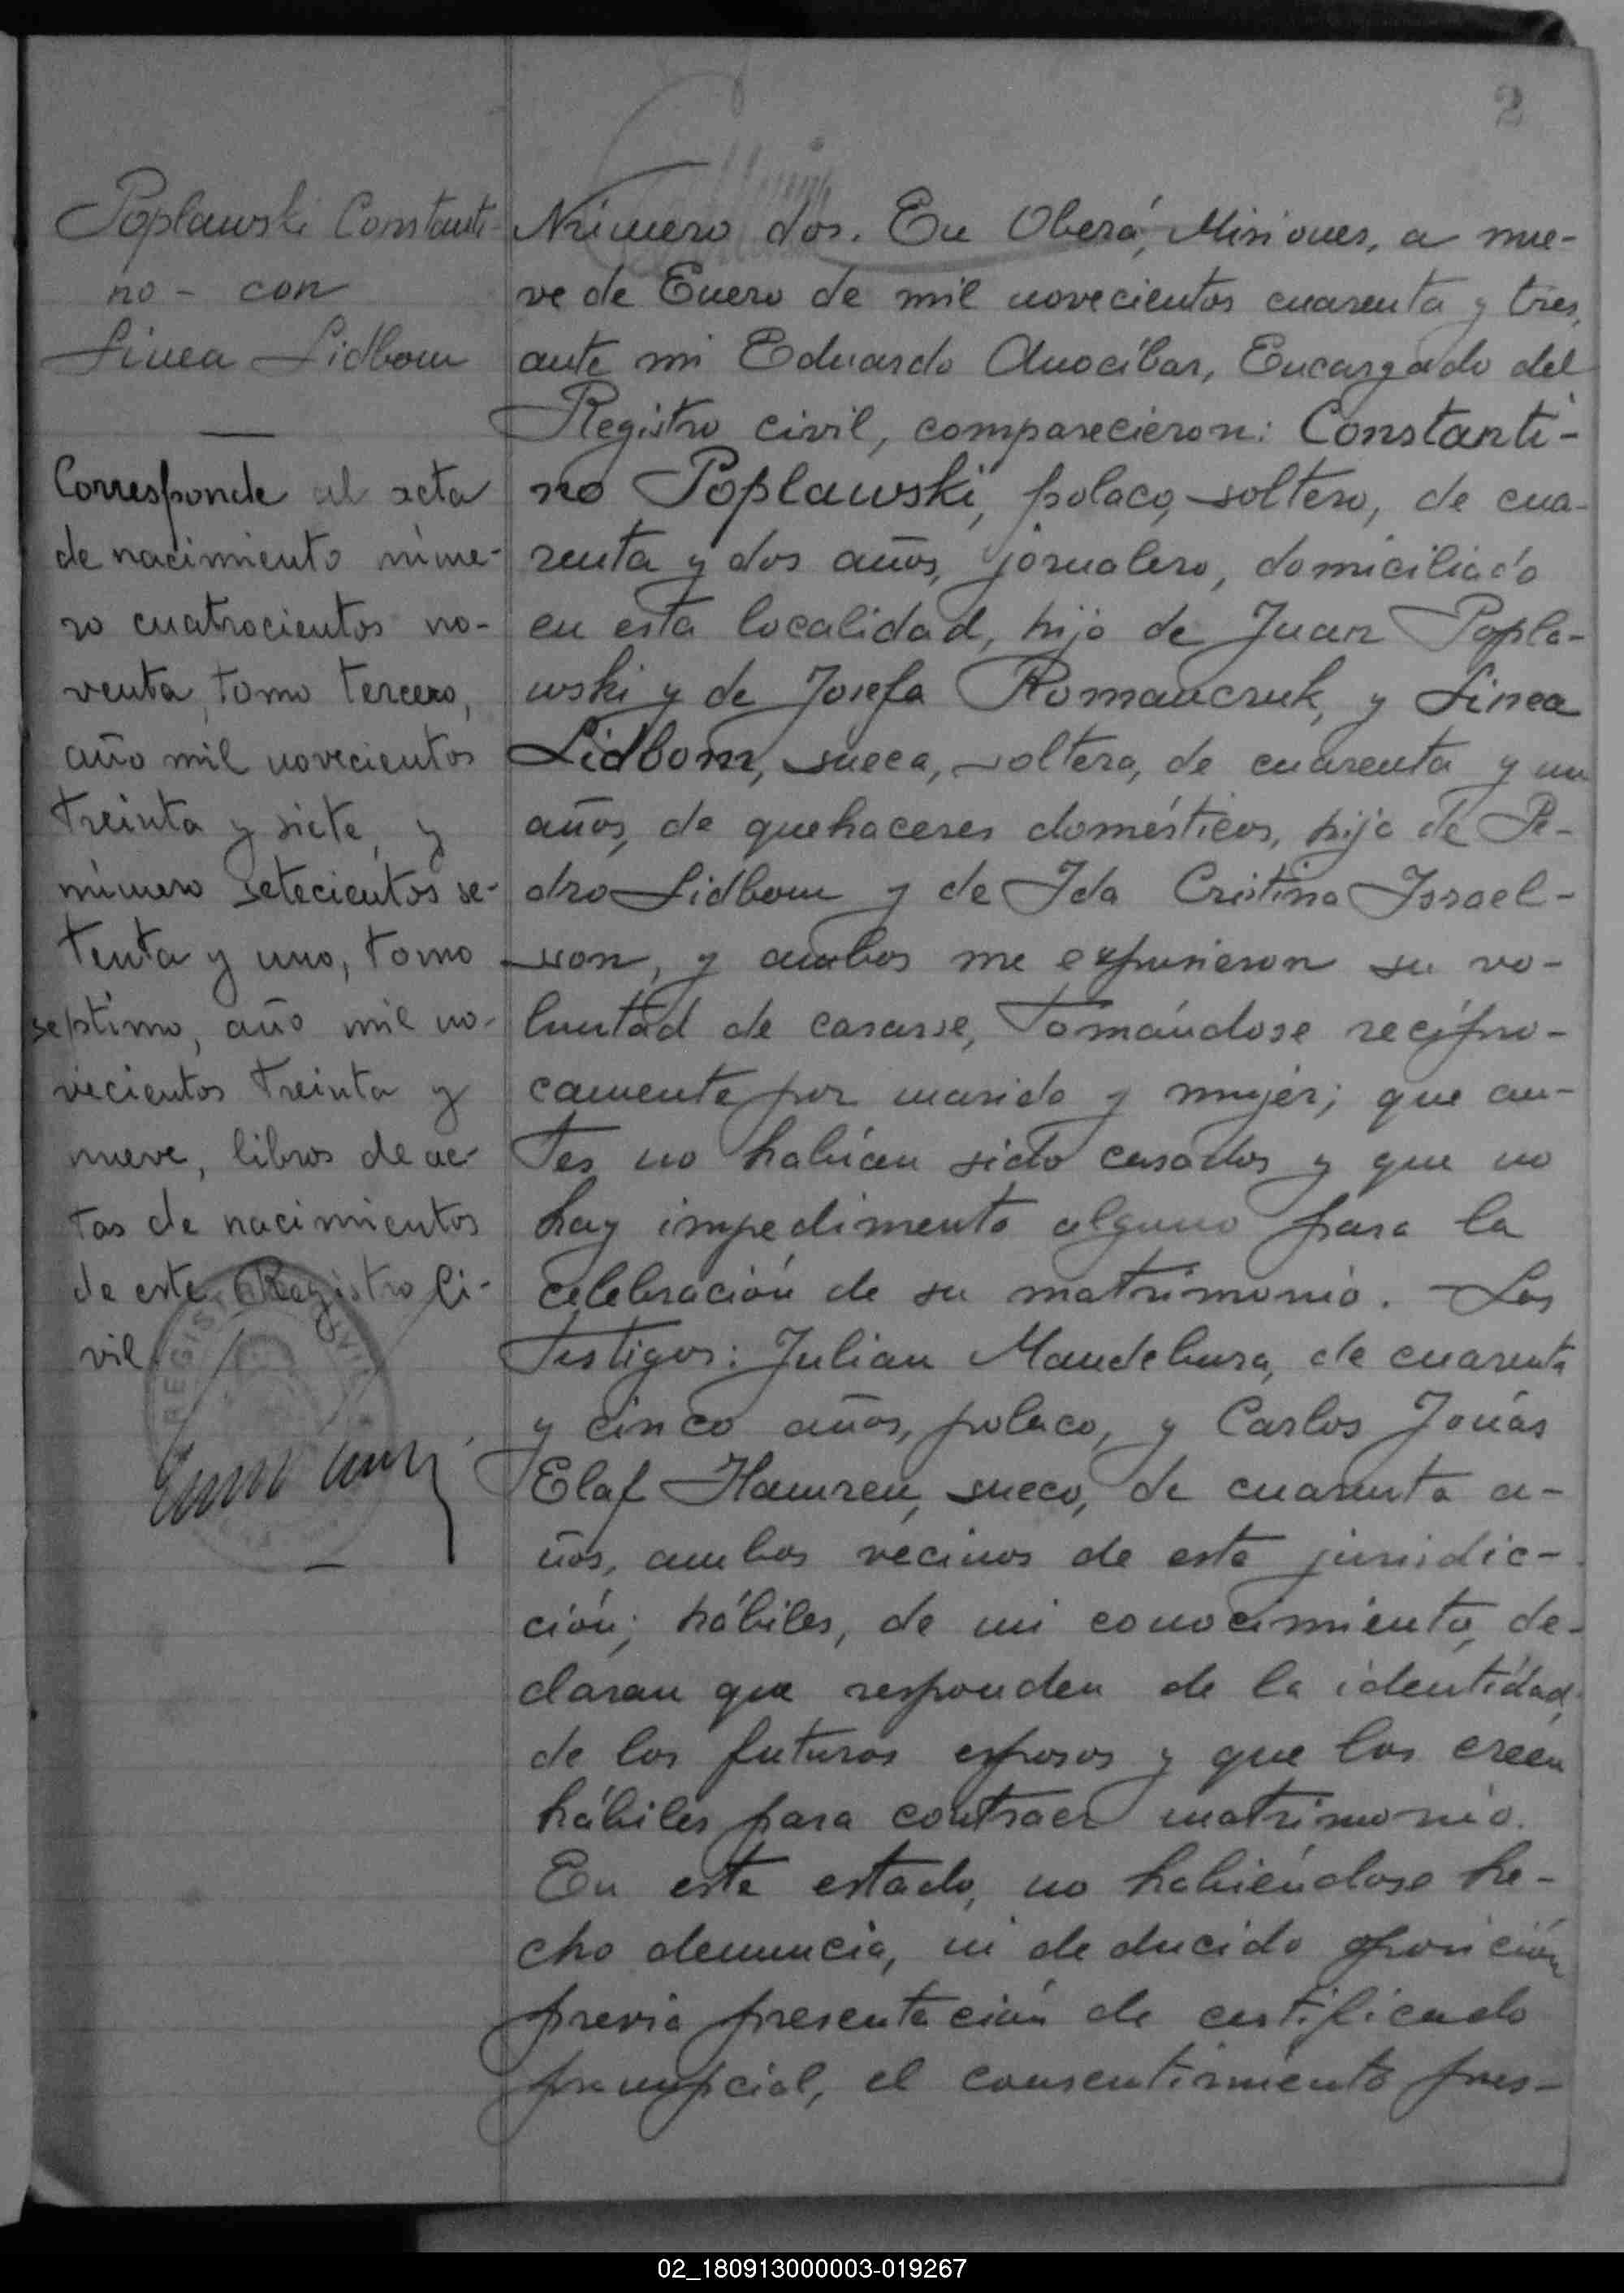 2
Poplawski Constanti-
no - con
Linea Lidbom
Corresponde al acta
de nacimiento núme-
ro cuatrocientos no-
venta, tomo tercero,
año mil novecientos
treinta y siete, y
número setecientos se-
tenta y uno, tomo
septimo, año mil no-
vecientos treinta y
nueve, libros de ac-
tas de nacimientos
de este Registro Ci-
vil
Número dos. En Oberá, Misiones, a nue-
ve de Enero de mil novecientos cuarenta y tres,
ante mi Eduardo Anocíbar, Encargado del
Registro civil, comparecieron: Constanti-
no Poplawski, polaco, soltero, de cua-
renta y dos años, jornalero, domiciliado
en esta localidad, hijo de Juan Popla-
wski y de Josefa Romanczuk, y Linea
Lidbom, sueca, soltera, de cuarenta y un
años, de quehaceres domésticos, hija de Pe-
dro Lidbom y de Ida Cristina Israel-
sson, y ambos me expusieron su vo-
luntad de casarse, tomándose recípro-
camente por marido y mujer; que an-
tes no habían sido casados y que no
hay impedimento alguno para la
celebración de su matrimonio. Los
testigos: Julian Mandebura, de cuarenta
y cinco años, polaco, y Carlos Jonás
Elaf Hamren, sueco, de cuarenta a-
ños, ambos vecinos de esta jurisdic-
ción; hábiles, de mi conocimiento, de-
claran que responden de la identidad,
de los futuros esposos y que los creen
hábiles para contraer matrimonio.
En este estado, no habiéndose he-
cho denuncia, ni deducido oposición
previa presentación de certificado
prenupcial, el consentimiento pres-
02_180913000003-019267